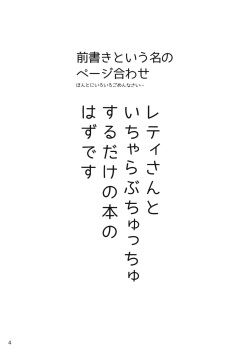 前書きという名の
ページ合わせ
ほんとにいろいろごめんなさい…
レティさんと
いちゃらぶちゅっちゅ
するだけの本の
はずです
4